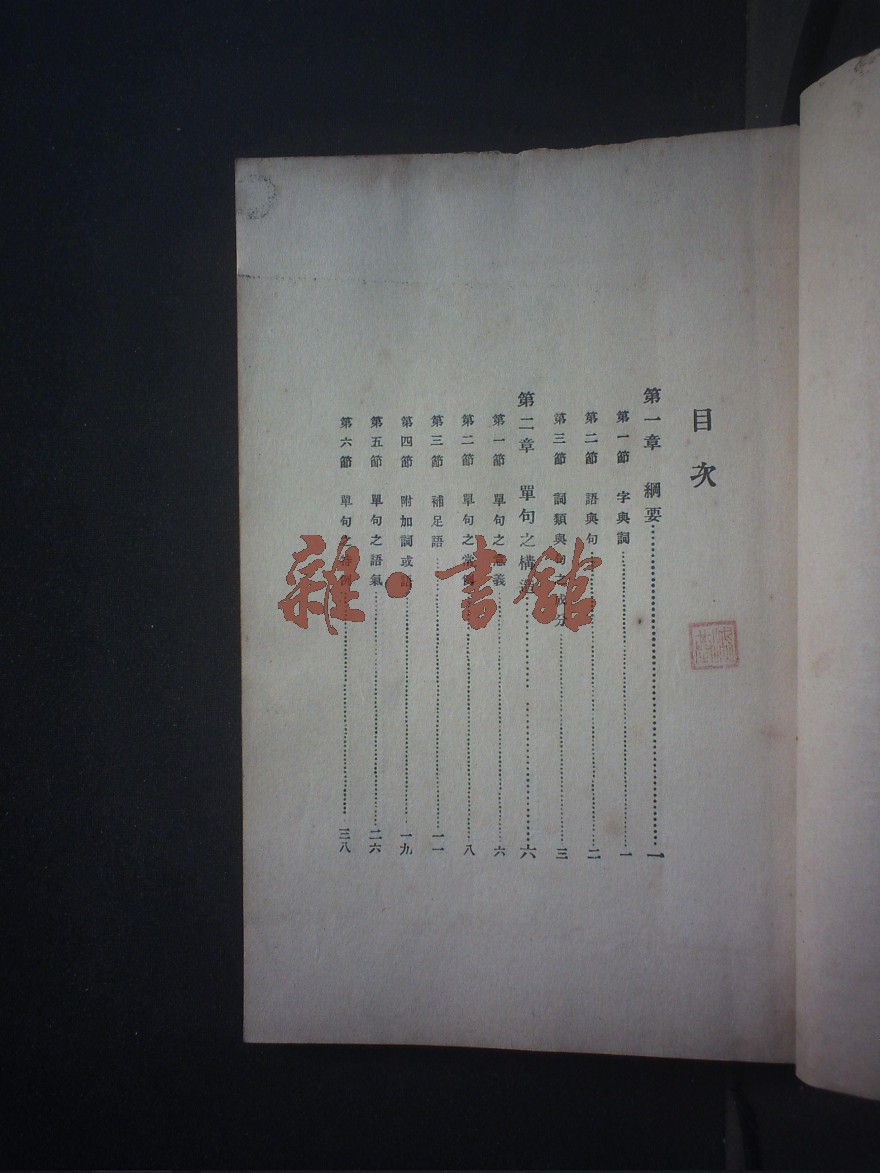 目次
第一章 綱要……一
第一節 字與詞……一
第二節 語與句……二
第三節 詞類與句之成分……三
第二章 單句之構造……六
第一節 單句之意義……六
第二節 單句之常例……八
第三節 補足語……一一
第四節 附加詞或語……一九
第五節 單句之語氣……二六
第六節 單句之特例……三八
雜·書館